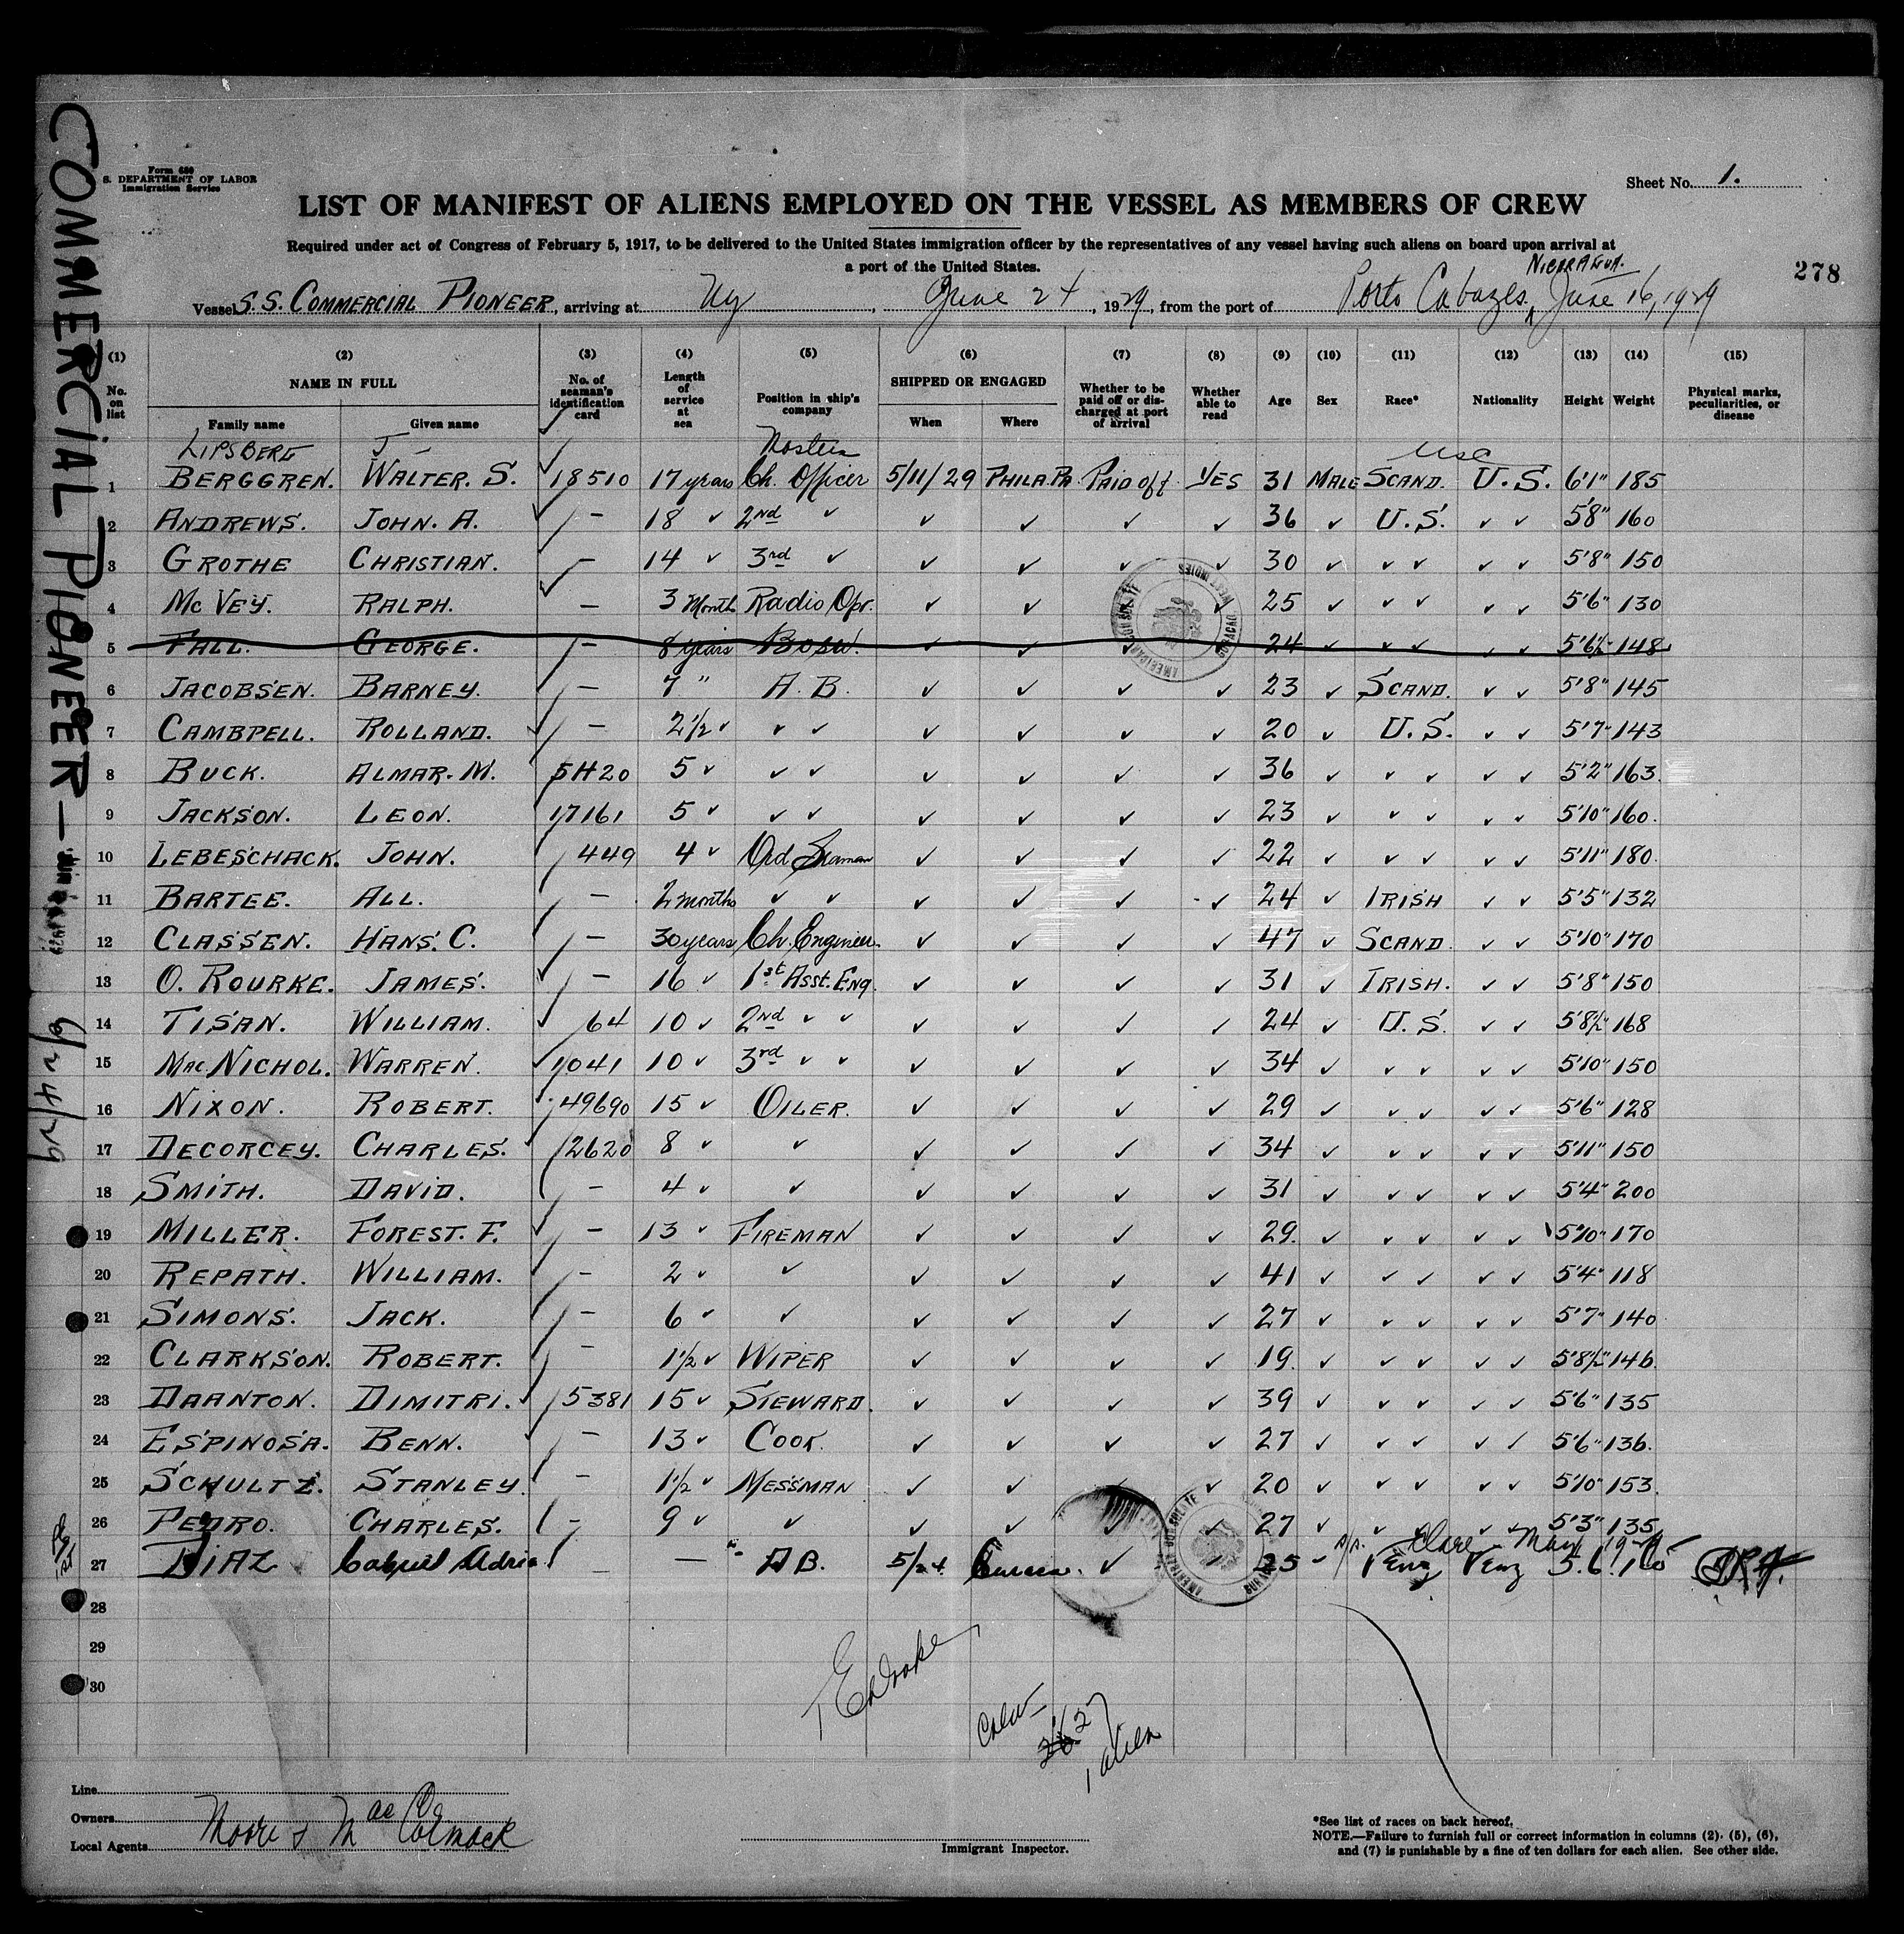 Form 680
S. DEPARTMENT OF LABOR
Immigration Service
Sheet No. 1.
LIST OF MANIFEST OF ALIENS EMPLOYED ON THE VESSEL AS MEMBERS OF CREW
Required under act of Congress of February 5, 1917, to be delivered to the United States immigration officer by the representatives of any vessel having such aliens on board upon arrival at
a port of the United States.
278
NICARAGUA.
Vessel S.S. COMMERCIAL PIONEER, arriving at Ny, June 24, 1929, from the port of Porto Cabazes, June 16, 1929
COMMERCIAL PIONEER — 6/24/29
(1) (2) (3) (4) (5) (6) (7) (8) (9) (10) (11) (12) (13) (14) (15)
No. on list NAME IN FULL No. of seaman's identification card Length of service at sea Position in ship's company SHIPPED OR ENGAGED Whether to be paid off or discharged at port of arrival Whether able to read Age Sex Race* Nationality Height Weight Physical marks, peculiarities, or disease
Family name Given name When Where
LIPSBERG J — usc
1 BERGGREN. WALTER. S. 18510 17 years Ch. Officer 5/11/29 PHILA. PA. PAID off YES 31 MALE SCAND. U.S. 6'1" 185
2 ANDREWS. JOHN. A. – 18 ✓ 2nd ✓ ✓ ✓ ✓ ✓ 36 ✓ U.S. ✓ ✓ 5'8" 160
3 GROTHE CHRISTIAN. – 14 ✓ 3rd ✓ ✓ ✓ ✓ ✓ 30 ✓ ✓ ✓ ✓ ✓ 5'8" 150
4 Mc VEY. RALPH. – 3 Month Radio Opr. ✓ ✓ ✓ 25 ✓ ✓ ✓ ✓ ✓ 5'6" 130
5 FALL. GEORGE. – 8 years Bosn. ✓ ✓ ✓ ✓ 24 ✓ ✓ ✓ ✓ ✓ 5'6½" 148
6 JACOBSEN. BARNEY. – 7 " A. B. ✓ ✓ ✓ ✓ 23 ✓ SCAND. ✓ ✓ 5'8" 145
7 CAMBPELL. ROLLAND. – 2½ ✓ ✓ ✓ ✓ ✓ ✓ ✓ 20 ✓ U.S. ✓ ✓ 5'7" 143
8 BUCK. ALMAR. M. 5H20 5 ✓ ✓ ✓ ✓ ✓ ✓ ✓ 36 ✓ ✓ ✓ ✓ ✓ 5'2" 163.
9 JACKSON. LEON. 17161 5 ✓ ✓ ✓ ✓ ✓ ✓ ✓ 23 ✓ ✓ ✓ ✓ ✓ 5'10" 160.
10 LEBESCHACK. JOHN. 449 4 ✓ Ord Seaman ✓ ✓ ✓ ✓ 22 ✓ ✓ ✓ ✓ ✓ 5'11" 180.
11 BARTEE. ALL. – 2 months ✓ ✓ ✓ ✓ ✓ ✓ 24 ✓ IRISH ✓ ✓ 5'5" 132
12 CLASSEN. HANS. C. – 30 years Ch. Engineer. ✓ ✓ ✓ ✓ 47 ✓ SCAND. ✓ ✓ 5'10" 170
13 O. ROURKE. JAMES. – 16 ✓ 1st Asst. Eng. ✓ ✓ ✓ ✓ 31 ✓ IRISH. ✓ ✓ 5'8" 150
14 TISAN. WILLIAM. 64 10 ✓ 2nd ✓ ✓ ✓ ✓ ✓ ✓ 24 ✓ U.S. ✓ ✓ 5'8½" 168
15 Mac NICHOL. WARREN. 1041 10 ✓ 3rd ✓ ✓ ✓ ✓ ✓ ✓ 34 ✓ ✓ ✓ ✓ ✓ 5'10" 150
16 NIXON. ROBERT. 49690 15 ✓ OILER. ✓ ✓ ✓ ✓ 29 ✓ ✓ ✓ ✓ ✓ 5'6" 128
17 DECORCEY. CHARLES. 12620 8 ✓ ✓ ✓ ✓ ✓ ✓ 34 ✓ ✓ ✓ ✓ ✓ 5'11" 150
18 SMITH. DAVID. – 4 ✓ ✓ ✓ ✓ ✓ ✓ 31 ✓ ✓ ✓ ✓ ✓ 5'4" 200
19 MILLER. FOREST. F. – 13 ✓ FIREMAN ✓ ✓ ✓ ✓ 29. ✓ ✓ ✓ ✓ ✓ 5'10" 170
20 REPATH. WILLIAM. – 2 ✓ ✓ ✓ ✓ ✓ ✓ 41 ✓ ✓ ✓ ✓ ✓ 5'4" 118
21 SIMONS. JACK. – 6 ✓ ✓ ✓ ✓ ✓ ✓ 27 ✓ ✓ ✓ ✓ ✓ 5'7" 140
22 CLARKSON. ROBERT. – 1½ ✓ WIPER ✓ ✓ ✓ ✓ 19. ✓ ✓ ✓ ✓ ✓ 5'8½" 146.
23 DAANTON. DIMITRI. 5381 15 ✓ STEWARD. ✓ ✓ ✓ ✓ 39 ✓ ✓ ✓ ✓ ✓ 5'6" 135
24 ESPINOSA. BENN. – 13 ✓ COOK. ✓ ✓ ✓ ✓ 27 ✓ ✓ ✓ ✓ ✓ 5'6" 136.
25 SCHULTZ. STANLEY. – 1½ ✓ MESSMAN ✓ ✓ ✓ ✓ 20 ✓ ✓ ✓ ✓ ✓ 5'10" 153.
26 PEDRO. CHARLES. – 9 ✓ ✓ ✓ ✓ ✓ ✓ 27 ✓ ✓ ✓ ✓ ✓ 5'3" 135
27 DIAZ Gabriel Adria – — AB. 5/24. Curacao. ✓ ✓ 25 Venz Venz 5.6. 160
28
29
30
Crew 26 27
1 alien
Line
Owners
Local Agents Moore & Mac Cormack
Immigrant Inspector.
*See list of races on back hereof.
NOTE.—Failure to furnish full or correct information in columns (2), (5), (6),
and (7) is punishable by a fine of ten dollars for each alien. See other side.